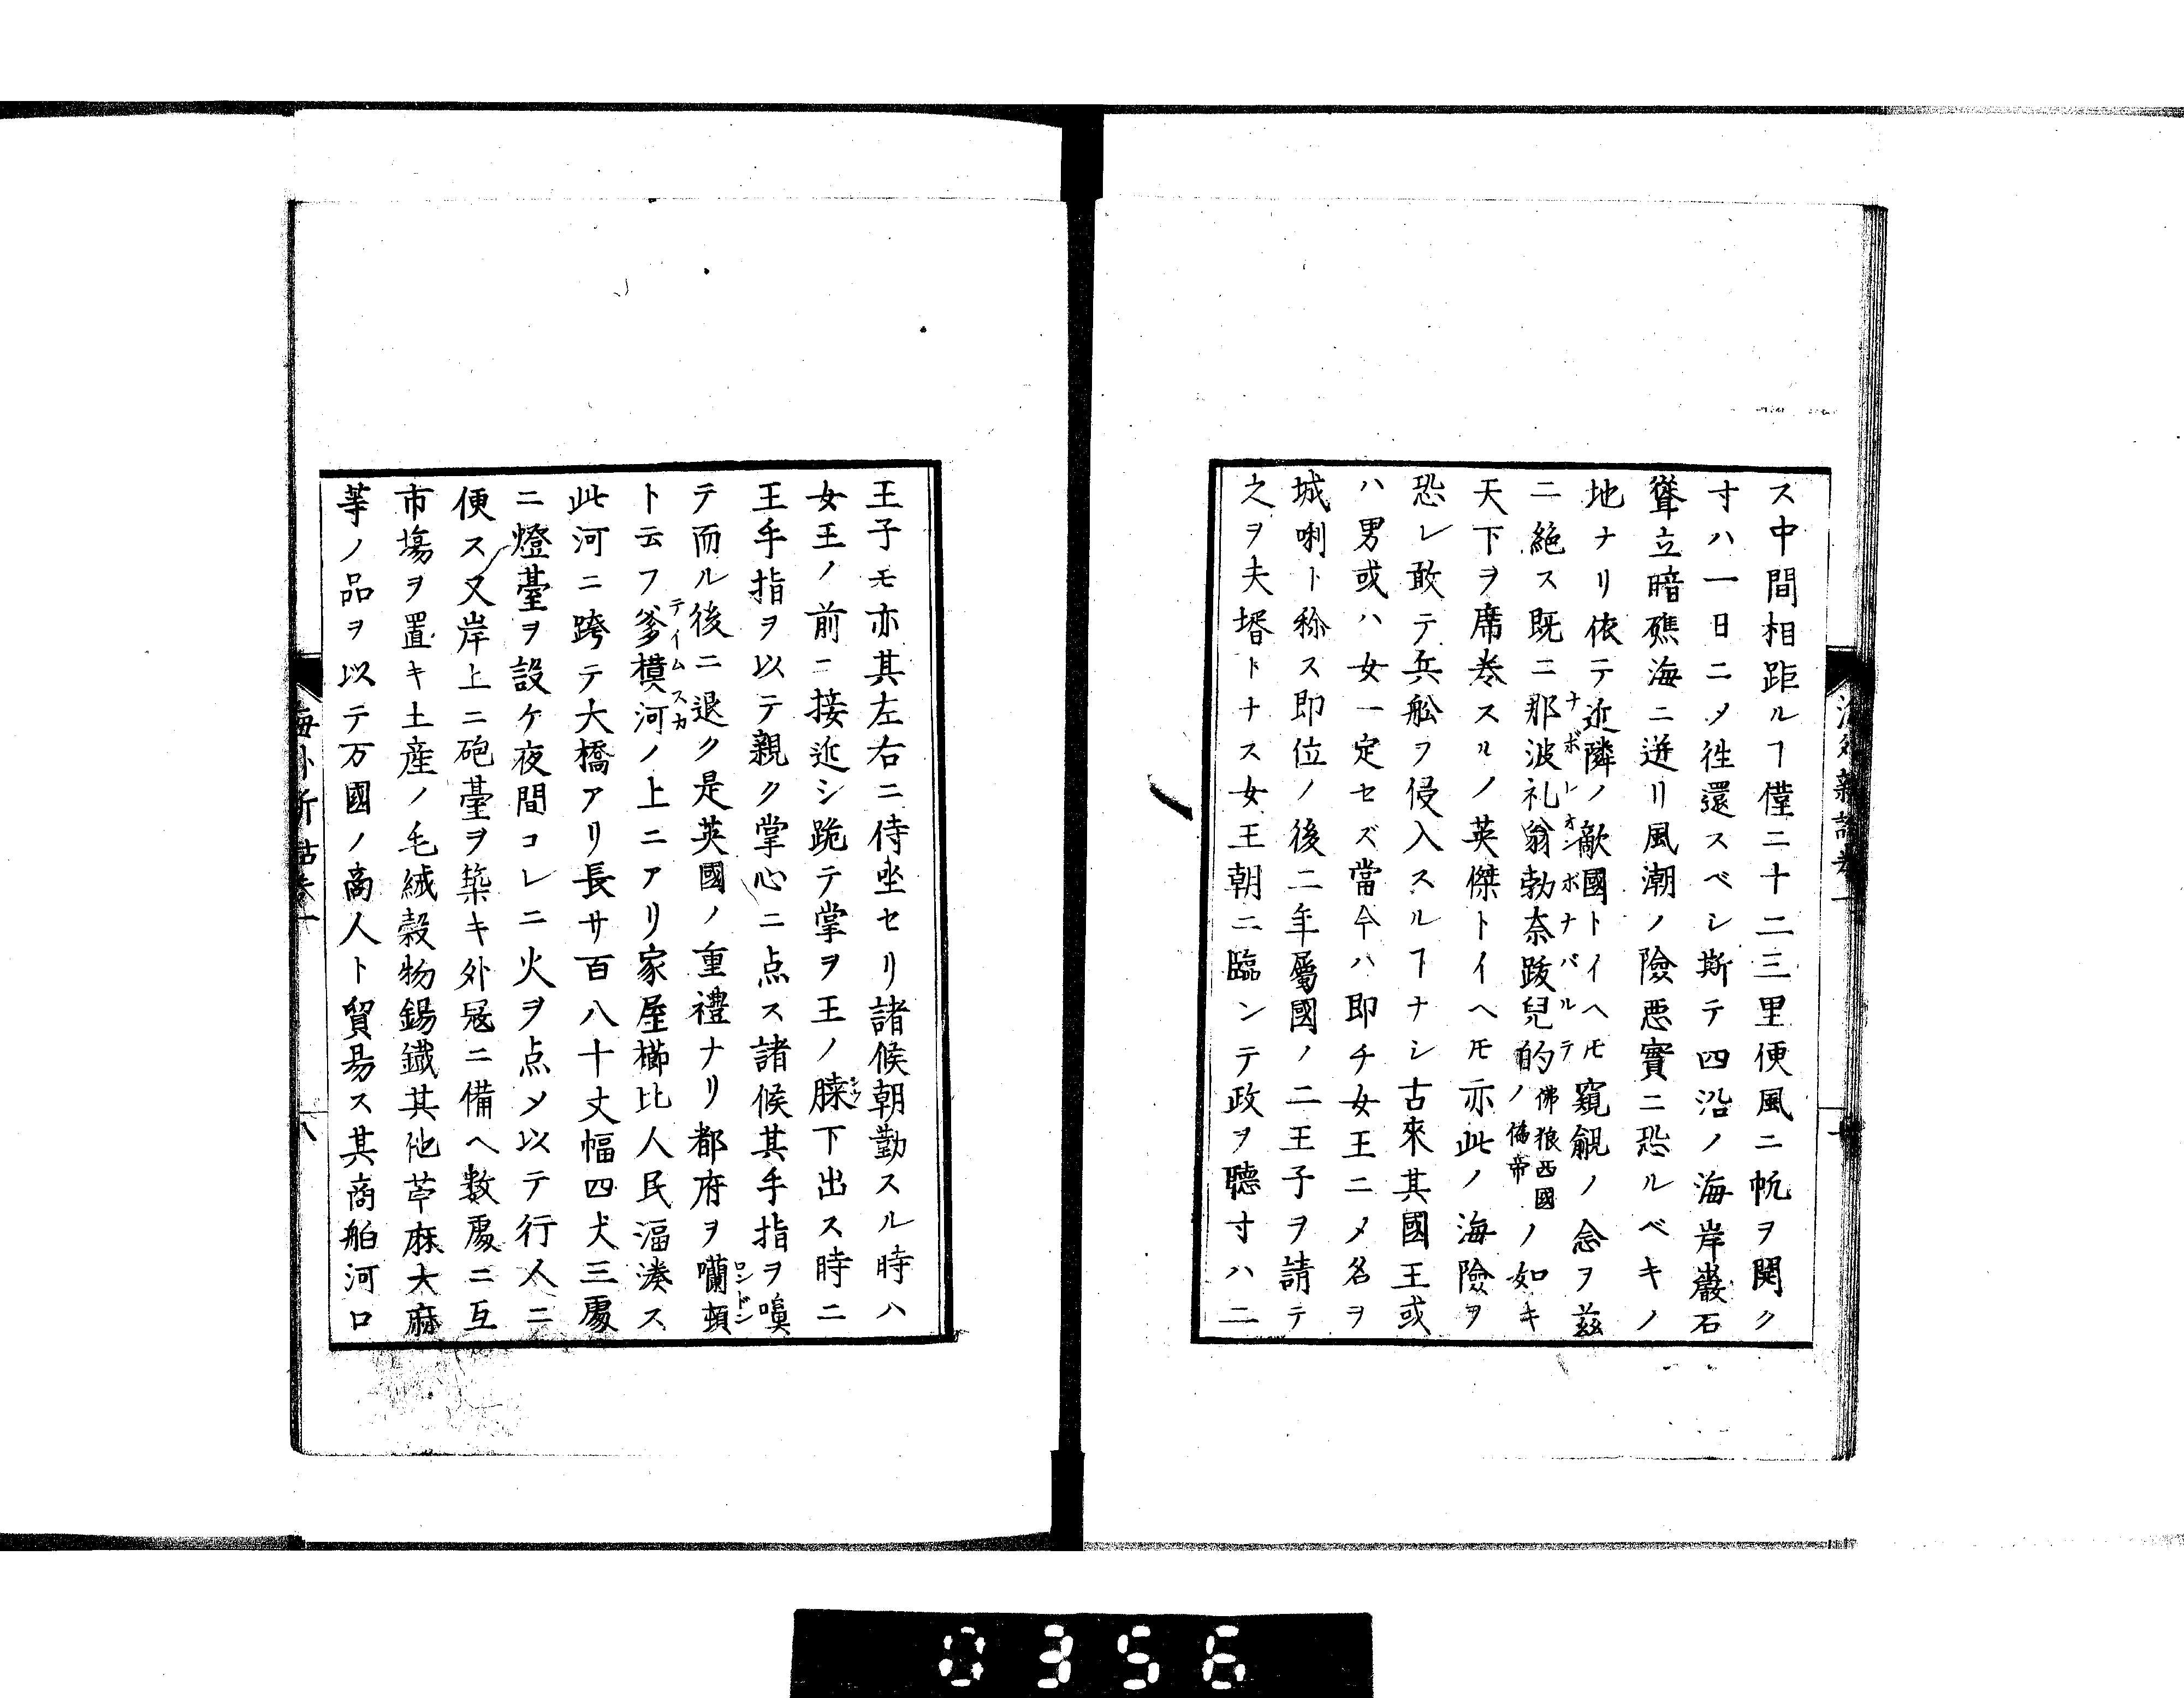 ス中間相距ルヿ僅二十二三里便風ニ帆ヲ開ク
寸ハ一日ニ〆徃還スベシ斯テ四沿ノ海岸巌石
聳立暗礁海ニ迸リ風潮ノ險悪實ニ恐ルベキノ
地ナリ依テ近隣ノ敵國トイヘ𪜈窺覦ノ念ヲ兹
ニ絶ス既ニ那波礼翁勃奈跋兒的ノ佛狼西國僞帝ノ如キ
ナボレオンボナパルテ
天下ヲ席巻スルノ英傑トイヘ𪜈亦此ノ海險ヲ
恐レ敢テ兵舩ヲ侵入スルヿナシ古來其國王或
ハ男或ハ女一定セズ當今ハ即チ女王ニ〆名ヲ
城唎ト称ス即位ノ後二年屬國ノ二王子ヲ請テ
之ヲ夫壻トナス女王朝ニ臨ンテ政ヲ聴寸ハ二
王子モ亦其左右ニ侍坐セリ諸候朝勤スル時ハ
女王ノ前ニ接近シ跪テ掌ヲ王ノ下出ス時ニ
王手指ヲ以テ親ク掌心ニ点ス諸候其手指ヲ嗅
テ而ル後ニ退ク是英國ノ重禮ナリ都府ヲ囒頓
ロンドン
ト云フ爹模河ノ上ニアリ家屋櫛比人民湢湊ス
テイムスカ
此河ニ跨テ大橋アリ長サ百八十丈幅四丈三處
ニ燈臺ヲ設ケ夜間コレニ火ヲ点〆以テ行人ニ
便ス又岸上ニ砲臺ヲ築キ外冦ニ備ヘ数處ニ互
市塲ヲ置キ土産ノ毛絨穀物錫鐵其他苧麻大麻
等ノ品ヲ以テ万國ノ商人ト貿易ス其商舶河口
海外新話巻一
八
0356